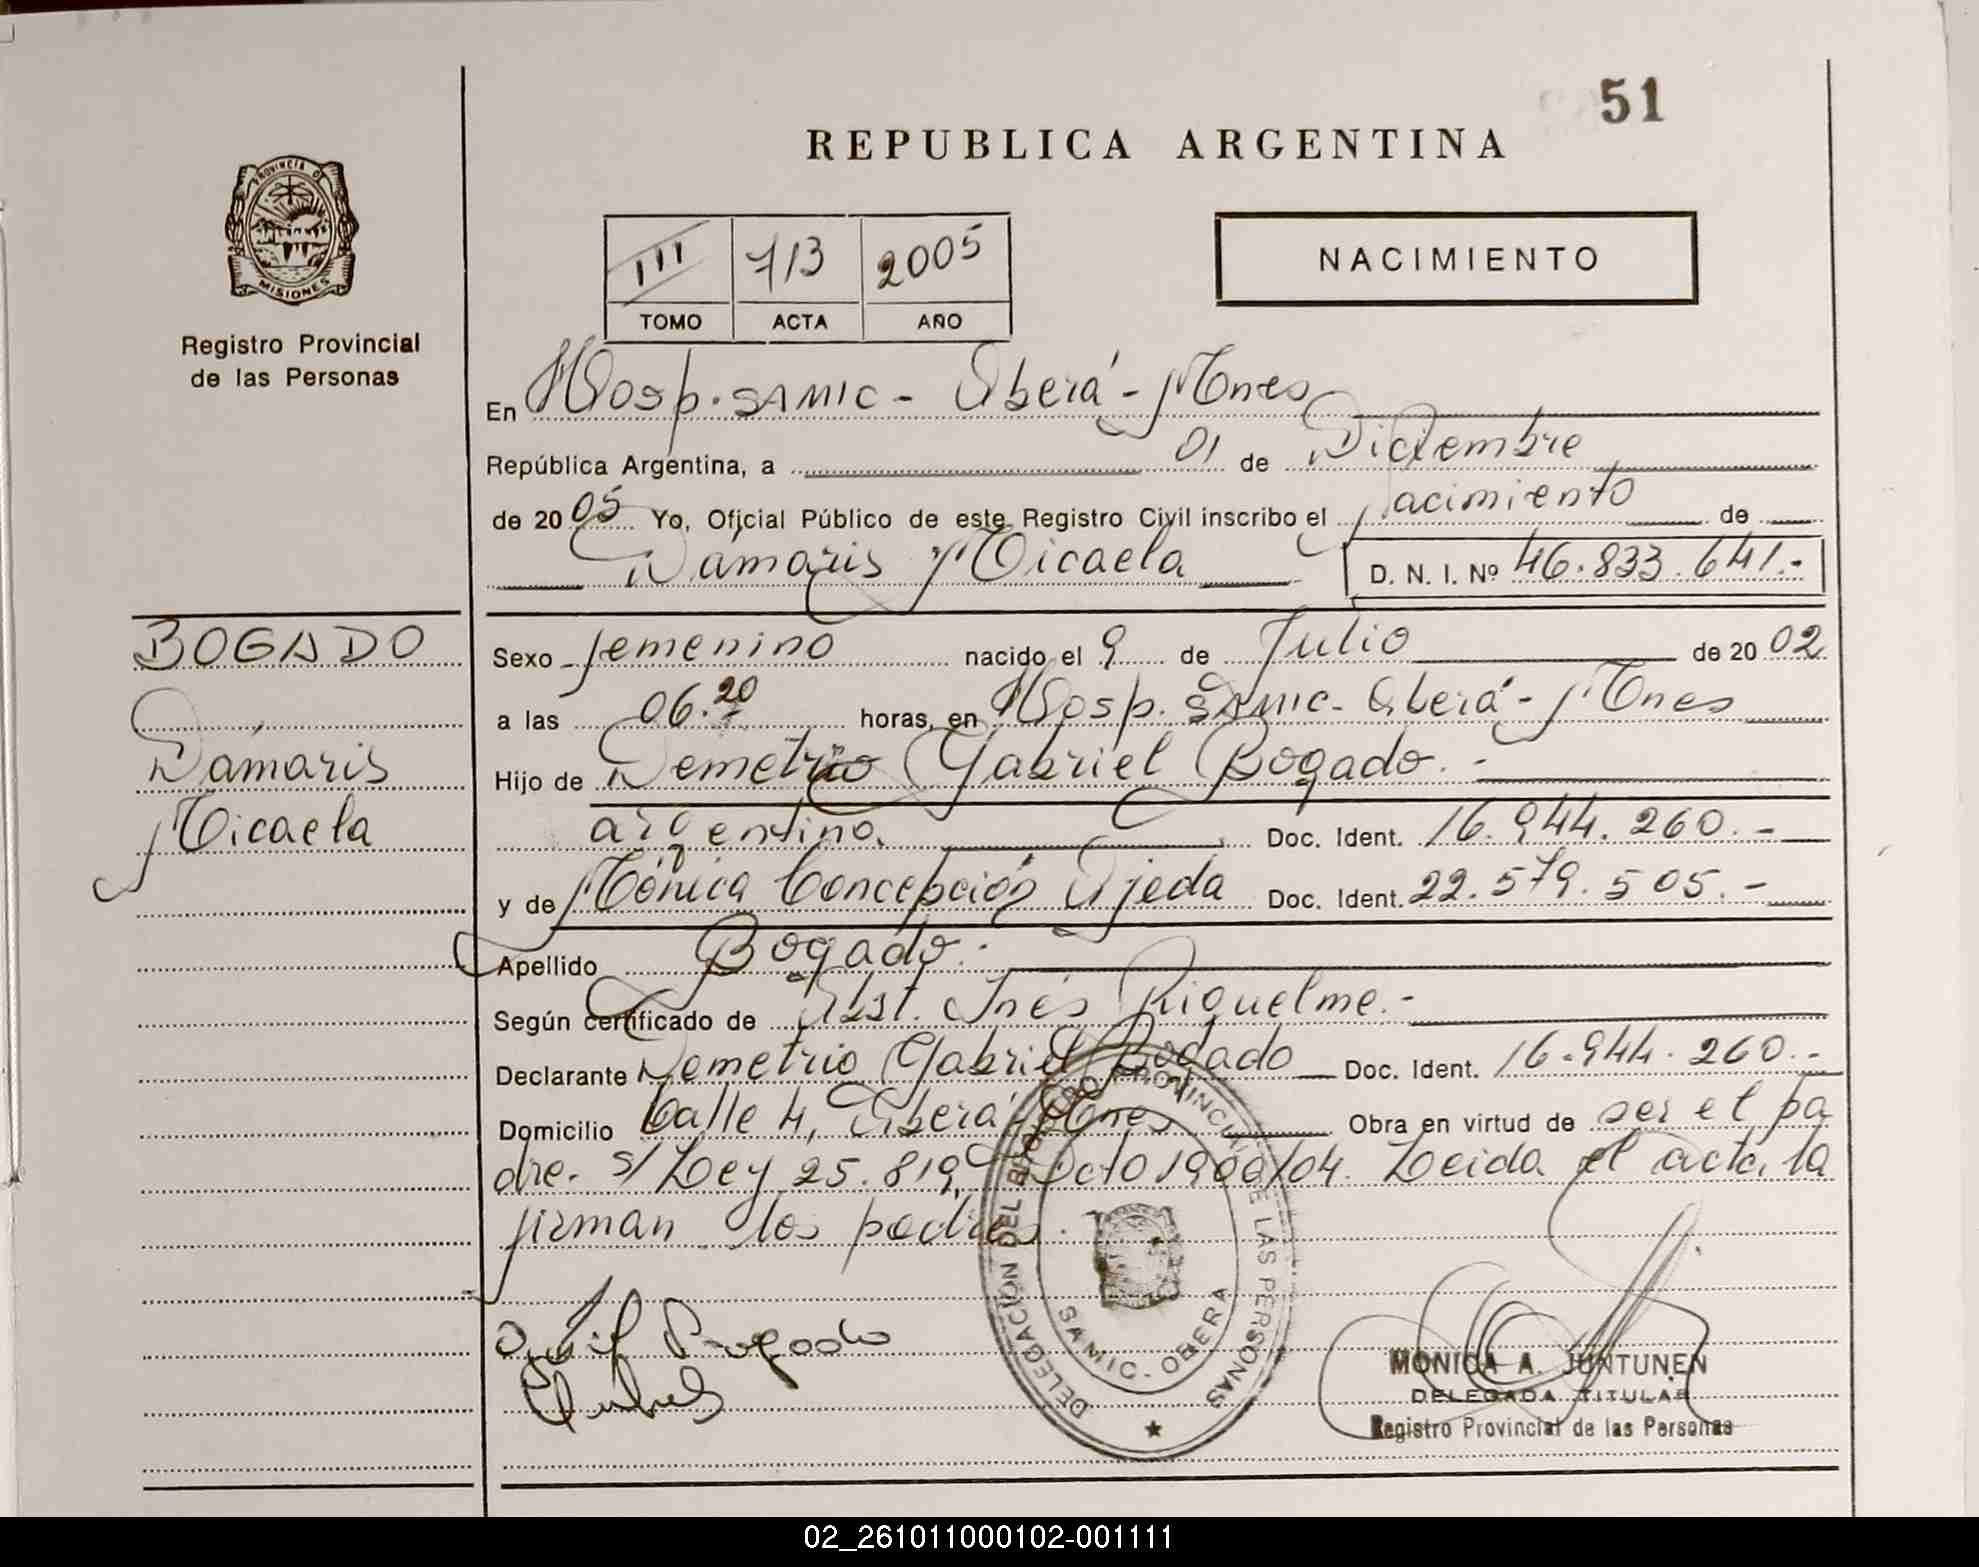 51
REPUBLICA ARGENTINA
PROVINCIA DE
MISIONES
Registro Provincial
de las Personas
III 713 2005
TOMO ACTA AÑO
NACIMIENTO
En Hosp. SAMIC - Oberá - Mnes
República Argentina, a 01 de Diciembre
de 2005 Yo, Oficial Público de este Registro Civil inscribo el Nacimiento de
Damaris Micaela D. N. I. Nº 46.833.641.-
BOGADO
Damaris
Micaela
Sexo femenino nacido el 9 de Julio de 2002
a las 06.20 horas, en Hosp. SAMIC - Oberá - Mnes
Hijo de Demetrio Gabriel Bogado. -
argentino. Doc. Ident. 16.944.260.-
y de Mónica Concepción Ojeda Doc. Ident. 22.579.505.-
Apellido Bogado.
Según certificado de Obst. Inés Riquelme.-
Declarante Demetrio Gabriel Bogado Doc. Ident. 16.944.260.-
Domicilio Calle 4, Oberá Mnes Obra en virtud de ser el pa
dre. s/ Ley 25.819, Dcto 1900/04. Leida el acta, la
firman los padres.
Bogado
DELEGACIÓN DEL REGISTRO PROVINCIAL DE LAS PERSONAS
SAMIC - OBERA
MONICA A. JUNTUNEN
DELEGADA TITULAR
Registro Provincial de las Personas
02_261011000102-001111